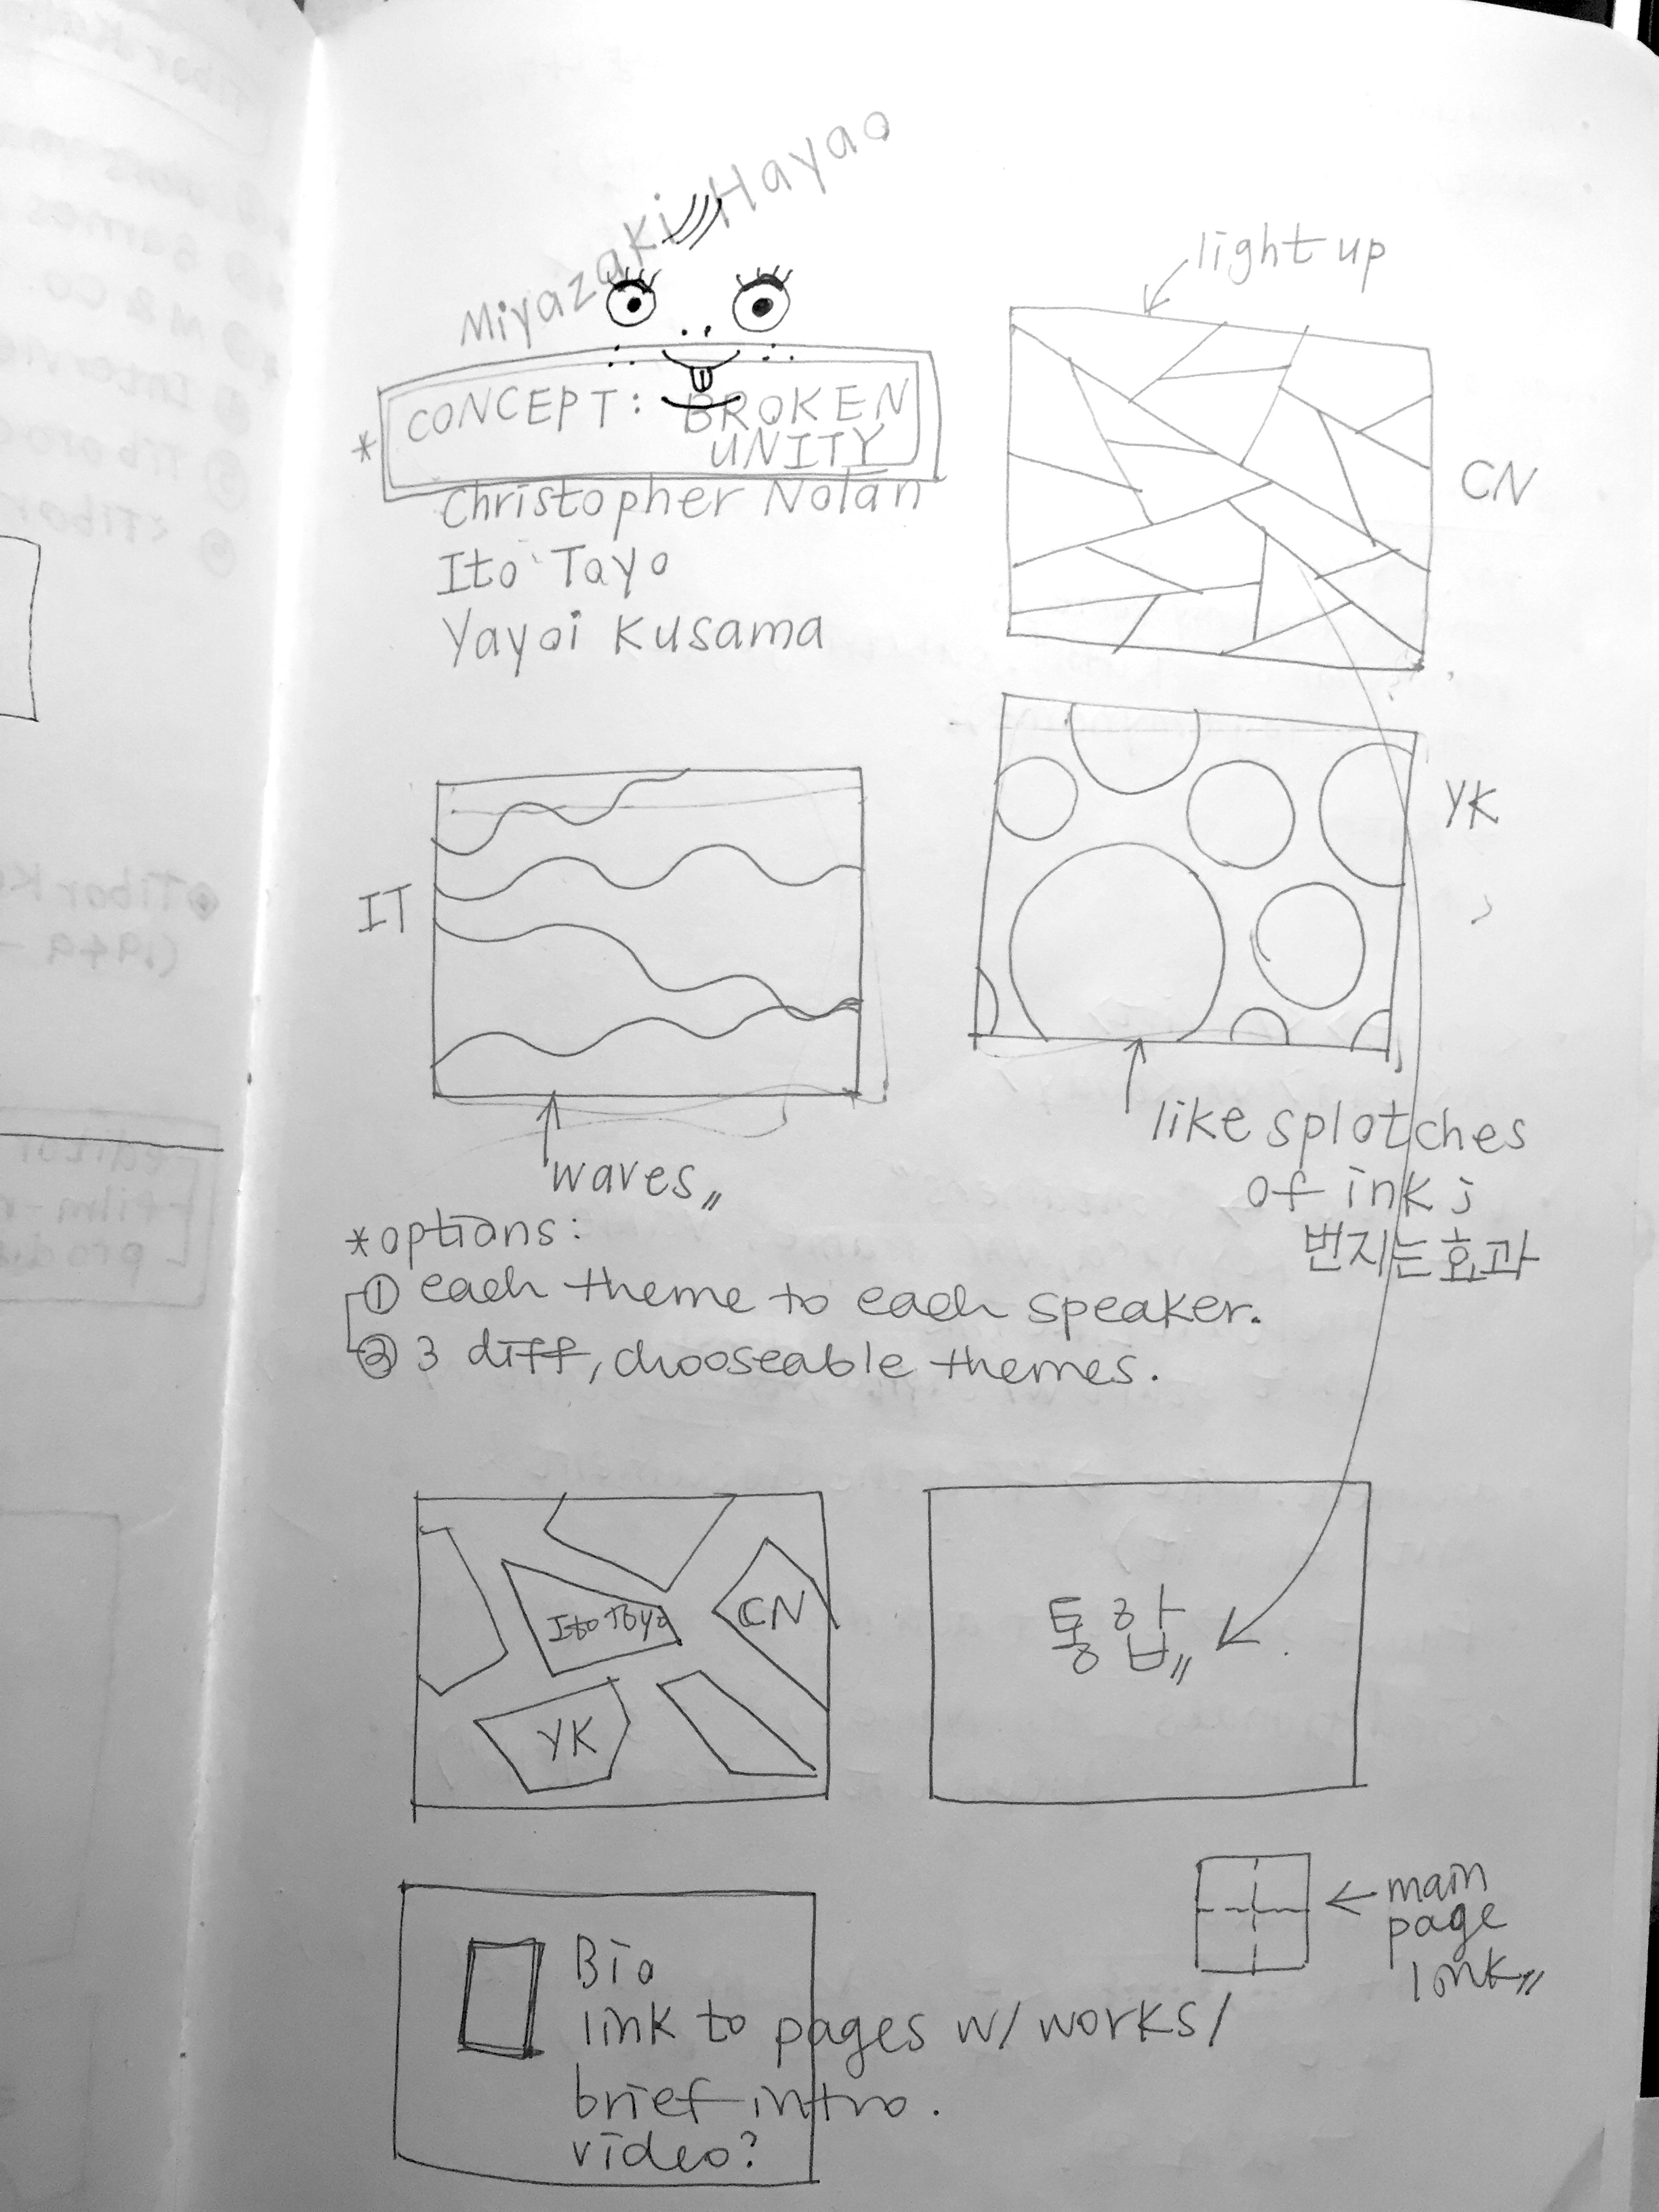 Miyazaki Hayao
* CONCEPT: BROKEN
UNITY
Christopher Nolan
Ito Toyo
Yayoi Kusama
light up
CN
IT
waves〃
YK
like splotches
of ink ;
번지는 효과
* options:
① each theme to each speaker.
② 3 diff, chooseable themes.
Ito Toyo
CN
YK
통합〃
Bio
link to pages w/ works/
brief intro.
video?
main
page
link〃